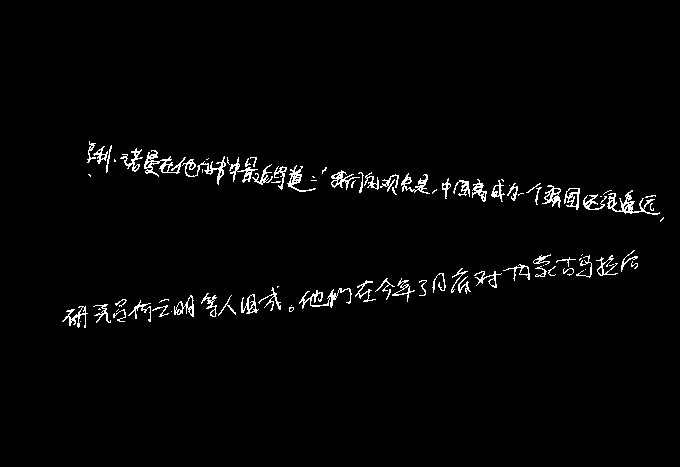 利·诺曼在他的书中最后写道:“我们的观点是,中国离成为一个强国还很遥远,
研究员何云明等人组成。他们在今年3月底对内蒙古乌拉后